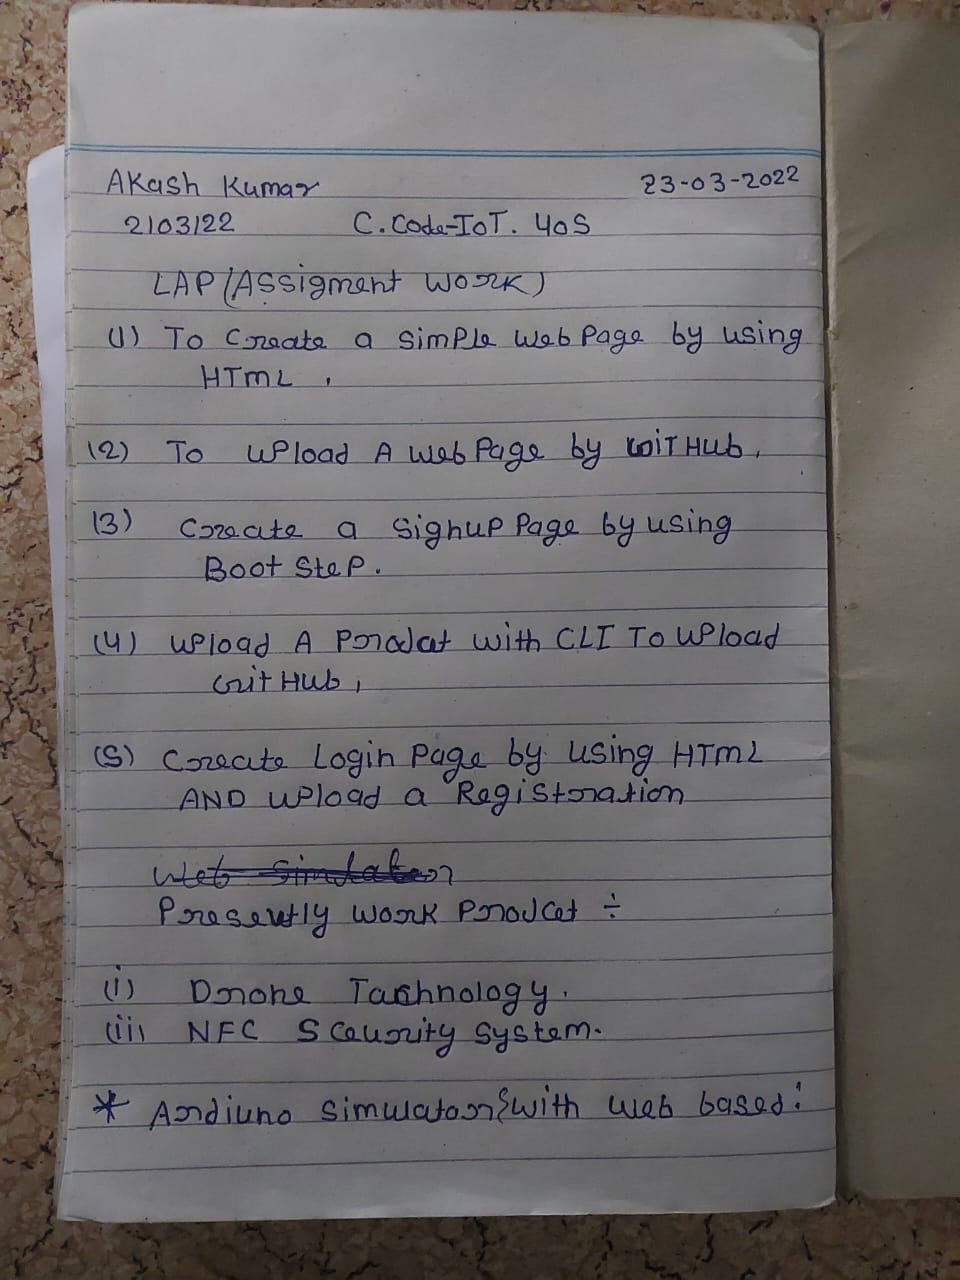 Akash Kumar 23-03-2022
2103122 C.Code-IoT. 405
LAP (Assigment work)
(1) To Create a simple web page by using
HTML.
(2) To upload A web page by GitHub.
(3) Create a signup page by using
Boot Step.
(4) upload A Prodat with CLI To upload
Git Hub,
(5) Create Login page by using HTML
AND upload a Registration
Presently work Prodcet ÷
(i) Drone Tachnology.
(ii) NFC Scaurity system.
* Ardiuno simulator & with web based: